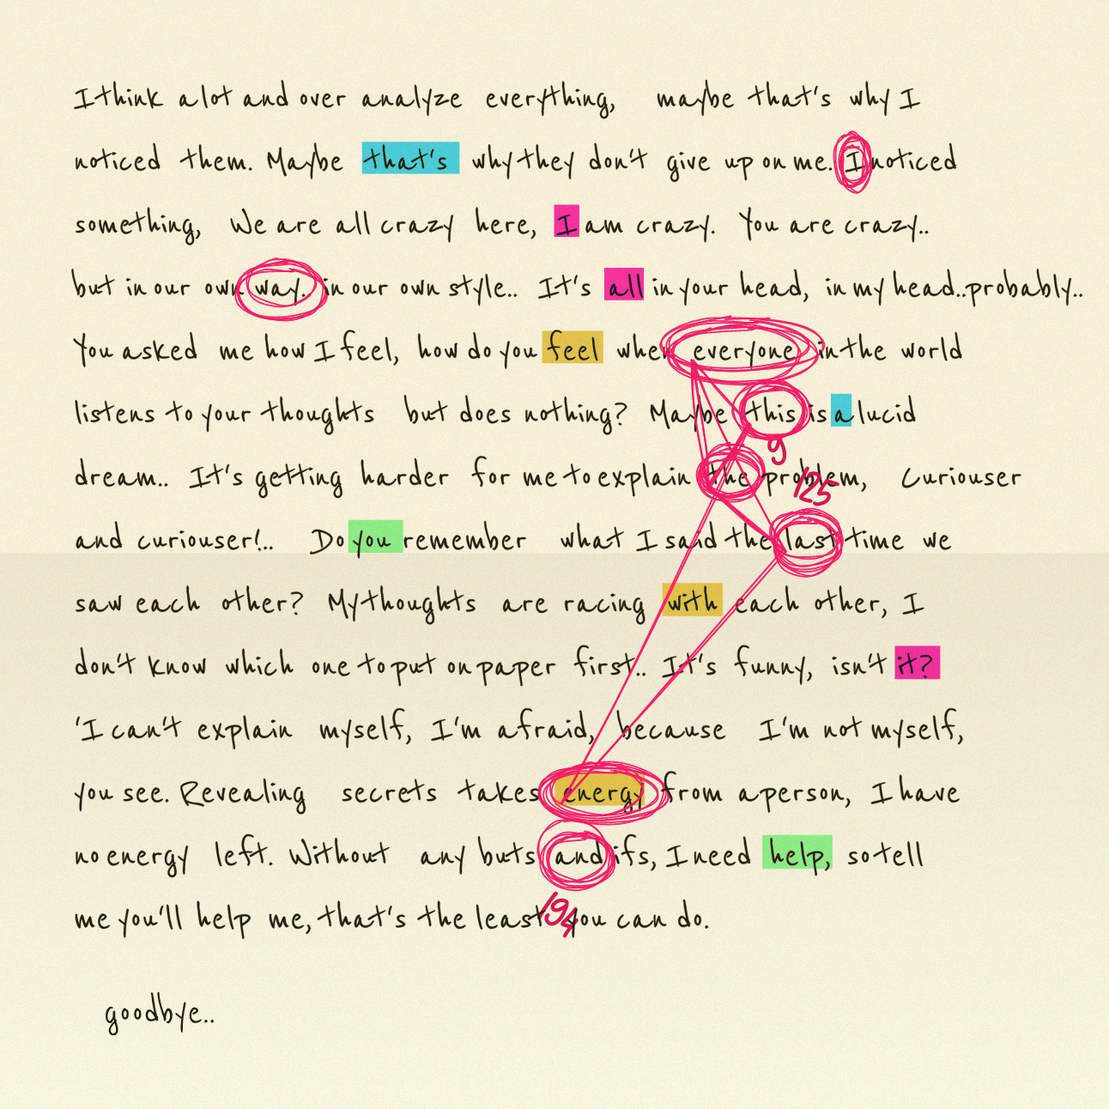 I think a lot and over analyze everything, maybe that's why I
noticed them. Maybe that's why they don't give up on me. I noticed
something, We are all crazy here, I am crazy. You are crazy..
but in our own way. in our own style.. It's all in your head, in my head..probably..
You asked me how I feel, how do you feel when everyone in the world
listens to your thoughts but does nothing? Maybe this is a lucid
9
dream.. It's getting harder for me to explain the problem, Curiouser
125
and curiouser!.. Do you remember what I said the last time we
saw each other? My thoughts are racing with each other, I
don't know which one to put on paper first.. It's funny, isn't it?
'I can't explain myself, I'm afraid, because I'm not myself,
you see. Revealing secrets takes energy from a person, I have
no energy left. Without any buts and ifs, I need help, so tell
194
me you'll help me, that's the least you can do.
goodbye..